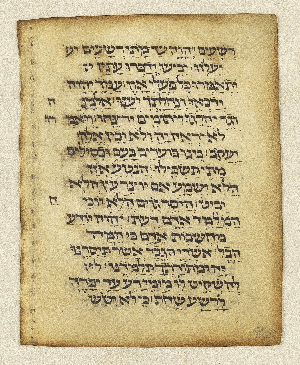 רשעים יהוה עד מתי רשעים יע
יעלזו יביעו ידברו עתק ית
יתאמרו כל פעלי און עמך יהוה
ידכאו ונחלתך יענו אלמנה
וגר יהרגו ויתומים ירצחו ויאמרו
לא יראה יה ולא יבין אלהי
יעקב בינו בערים בעם וכסילים
מתי תשכילו הנטע אזן
הלא ישמע אם יצר עין הלא
יביט היסר גוים הלא יוכיח
המלמד אדם דעת יהוה ידע
מחשבות אדם כי המה
הבל אשרי הגבר אשר תיסרנו
יה ומתורתך תלמדנו
להשקיט לו מימי רע עד יכרה
לרשע שחת כי לא יטש